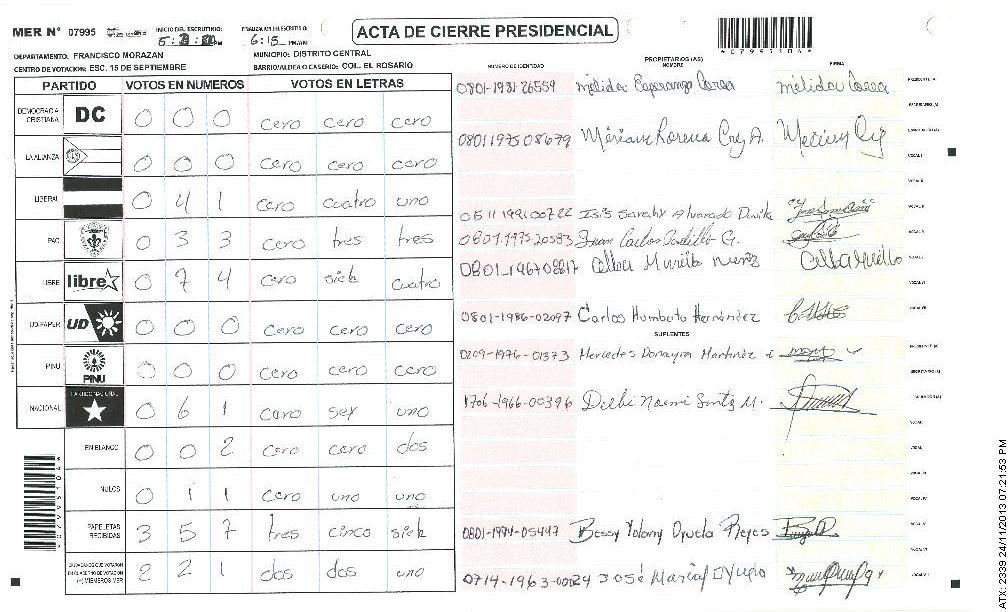 MER N° 07995 INICIO DEL ESCRUTINIO: FINALIZACION DEL ESCRUTINIO: 6:15 PM/AM
ACTA DE CIERRE PRESIDENCIAL
*07995104*
DEPARTAMENTO: FRANCISCO MORAZAN MUNICIPIO: DISTRITO CENTRAL
CENTRO DE VOTACION: ESC. 15 DE SEPTIEMBRE BARRIO/ALDEA O CASERIO: COL. EL ROSARIO
NUMERO DE IDENTIDAD PROPIETARIOS (AS) NOMBRE FIRMA
PARTIDO VOTOS EN NUMEROS VOTOS EN LETRAS
DEMOCRACIA CRISTIANA DC 0 0 0 cero cero cero
LA ALIANZA 0 0 0 cero cero cero
LIBERAL 0 4 1 cero cuatro uno
PAC 0 3 3 cero tres tres
LIBRE libre 0 7 4 cero siete cuatro
UD-FAPER UD 0 0 0 cero cero cero
PINU PINU 0 0 0 cero cero cero
NACIONAL PARTIDO NACIONAL 0 6 1 cero sey uno
EN BLANCO 0 0 2 cero cero dos
NULOS 0 1 1 cero uno uno
PAPELETAS RECIBIDAS 3 5 7 tres cinco siete
CIUDADANOS QUE VOTARON EN CUADERNO DE VOTACION (+) MIEMBROS MER 2 2 1 dos dos uno
0801-1981-26559 mélida Esperanza Correa mélida Correa
0801197508679 Miriam Lorena Cruz A.
0511199100722 Isis Sarahy Alvarado
0801-1975-20583 Juan Carlos Padilla G.
Murillo Nuñez
0801-1986-02097 Carlos Humberto Hernández
SUPLENTES
0209-1976-01373 Mercedes Martinez
1706-1966-00396 Noemi M.
0801-1994-05447 Bessy Yolany Oyuela Reyes
José
ATX: 2339 24/11/2013 07:21:53 PM